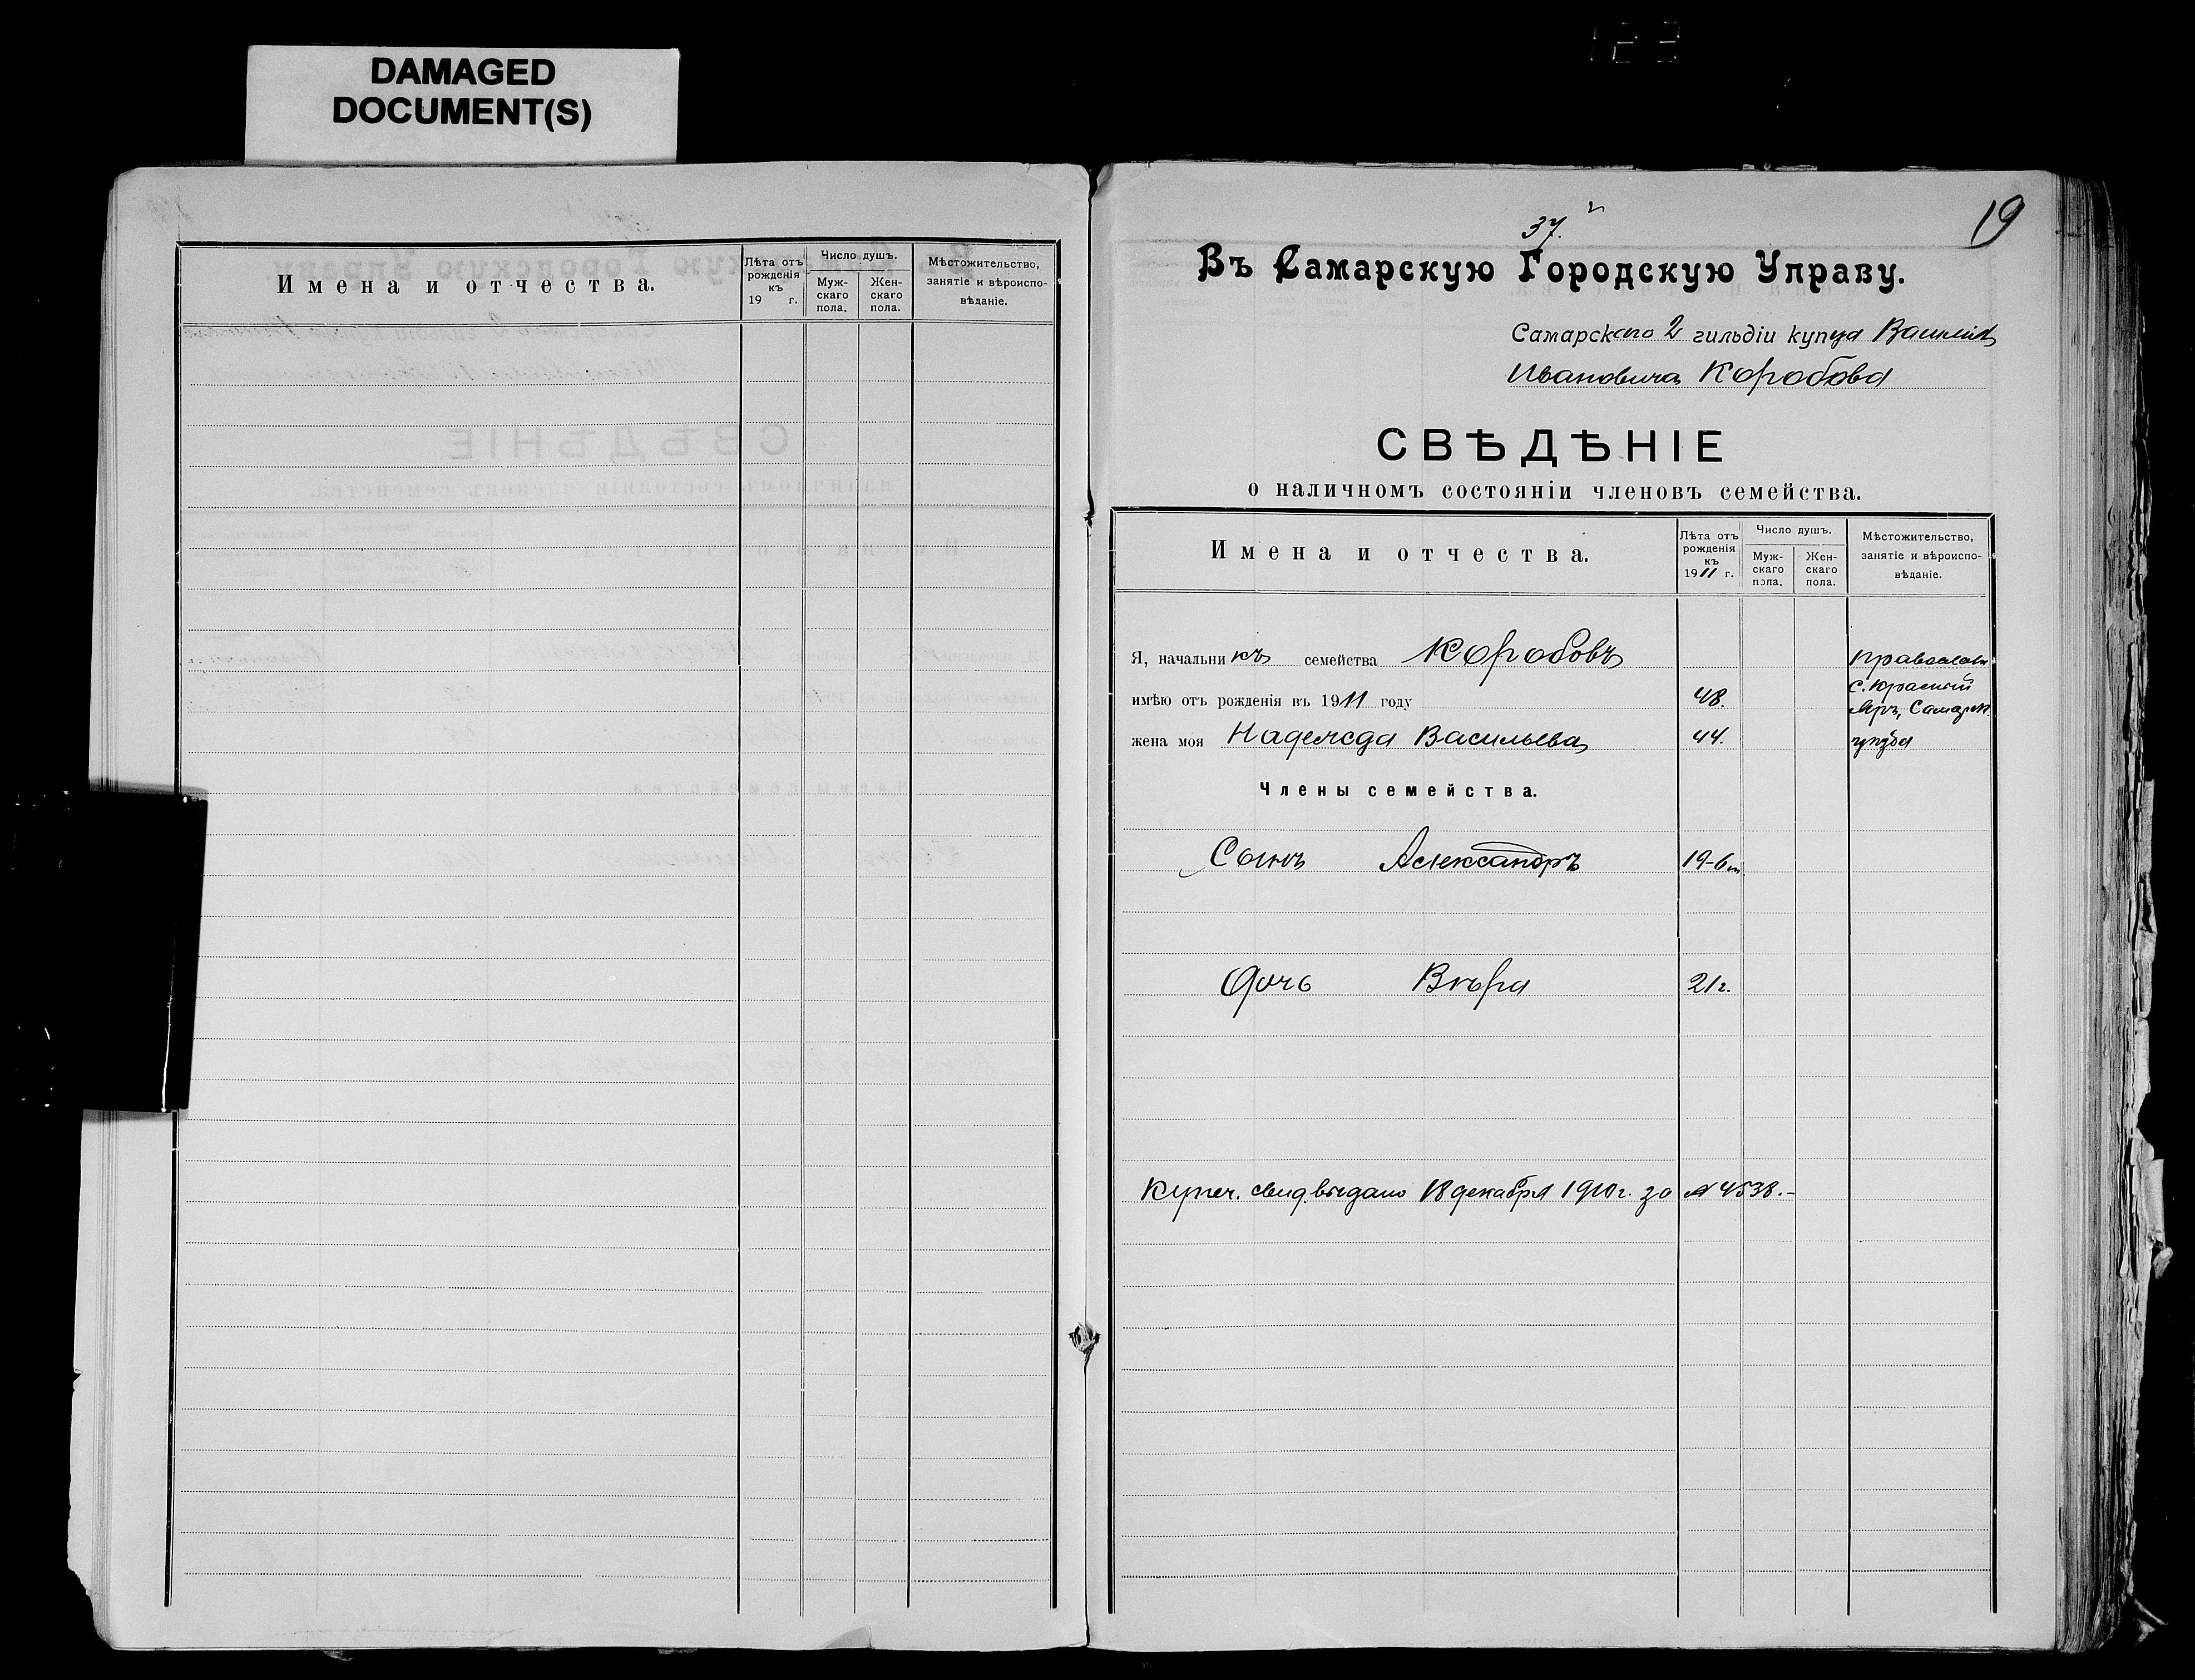 DAMAGED
DOCUMENT(S)
Имена и отчества.
Лѣта отъ рожденія къ 19 г.
Число душъ.
Муж-скаго пола.
Жен-скаго пола.
Мѣстожительство, занятіе и вѣроиспо-вѣданіе.
37.
19
Въ Самарскую Городскую Управу.
Самарскаго 2 гильдіи купца Василія
Ивановича Коробова
СВѢДѢНІЕ
о наличномъ состояніи членовъ семейства.
Имена и отчества.
Лѣта отъ рожденія къ 1911 г.
Число душъ.
Муж-скаго пола.
Жен-скаго пола.
Мѣстожительство, занятіе и вѣроиспо-вѣданіе.
Я, начальникъ семейства Коробовъ
православн
имѣю отъ рожденія въ 1911 году 48.
с. Красный
Яръ, Самарск.
жена моя Надежда Васильева 44. уѣзда
Члены семейства.
Сынъ Александръ 19-6м.
Дочь Вѣра 21г.
Купеч. свид. выдано 18 декабря 1910 г. за № 4538.-